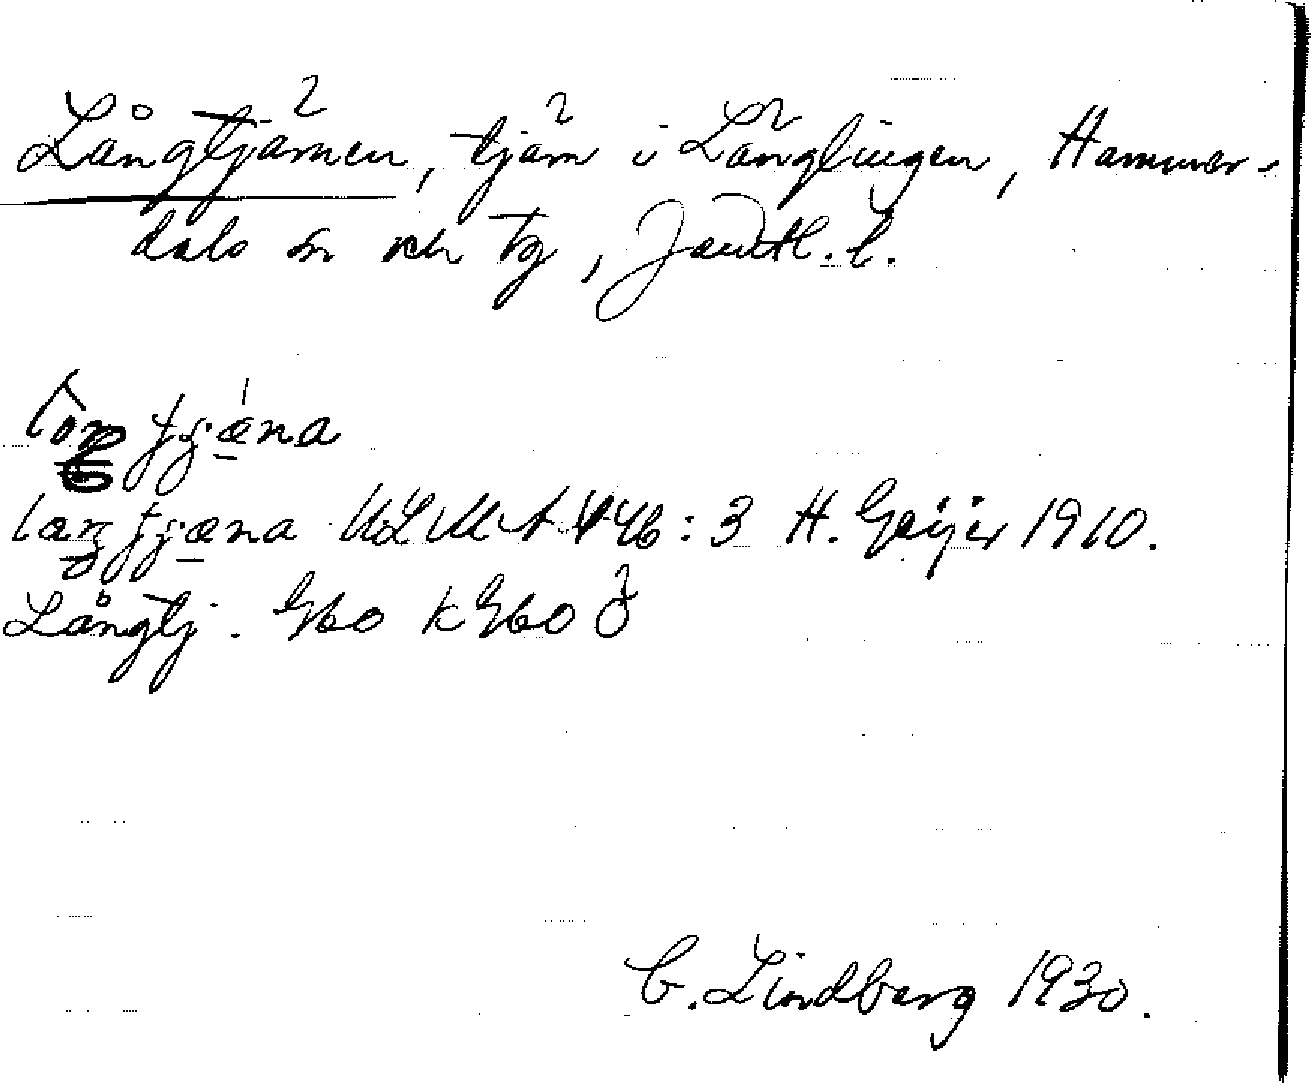 Långtjärnen, tjärn i Långlingen, Hammer-
dals sn och tg, Jämtl. l.
tjæna
tjæna ULMA 446:3 H. Geijer 1910.
Långtj. Gbo kGbo
C. Lindberg 1930.